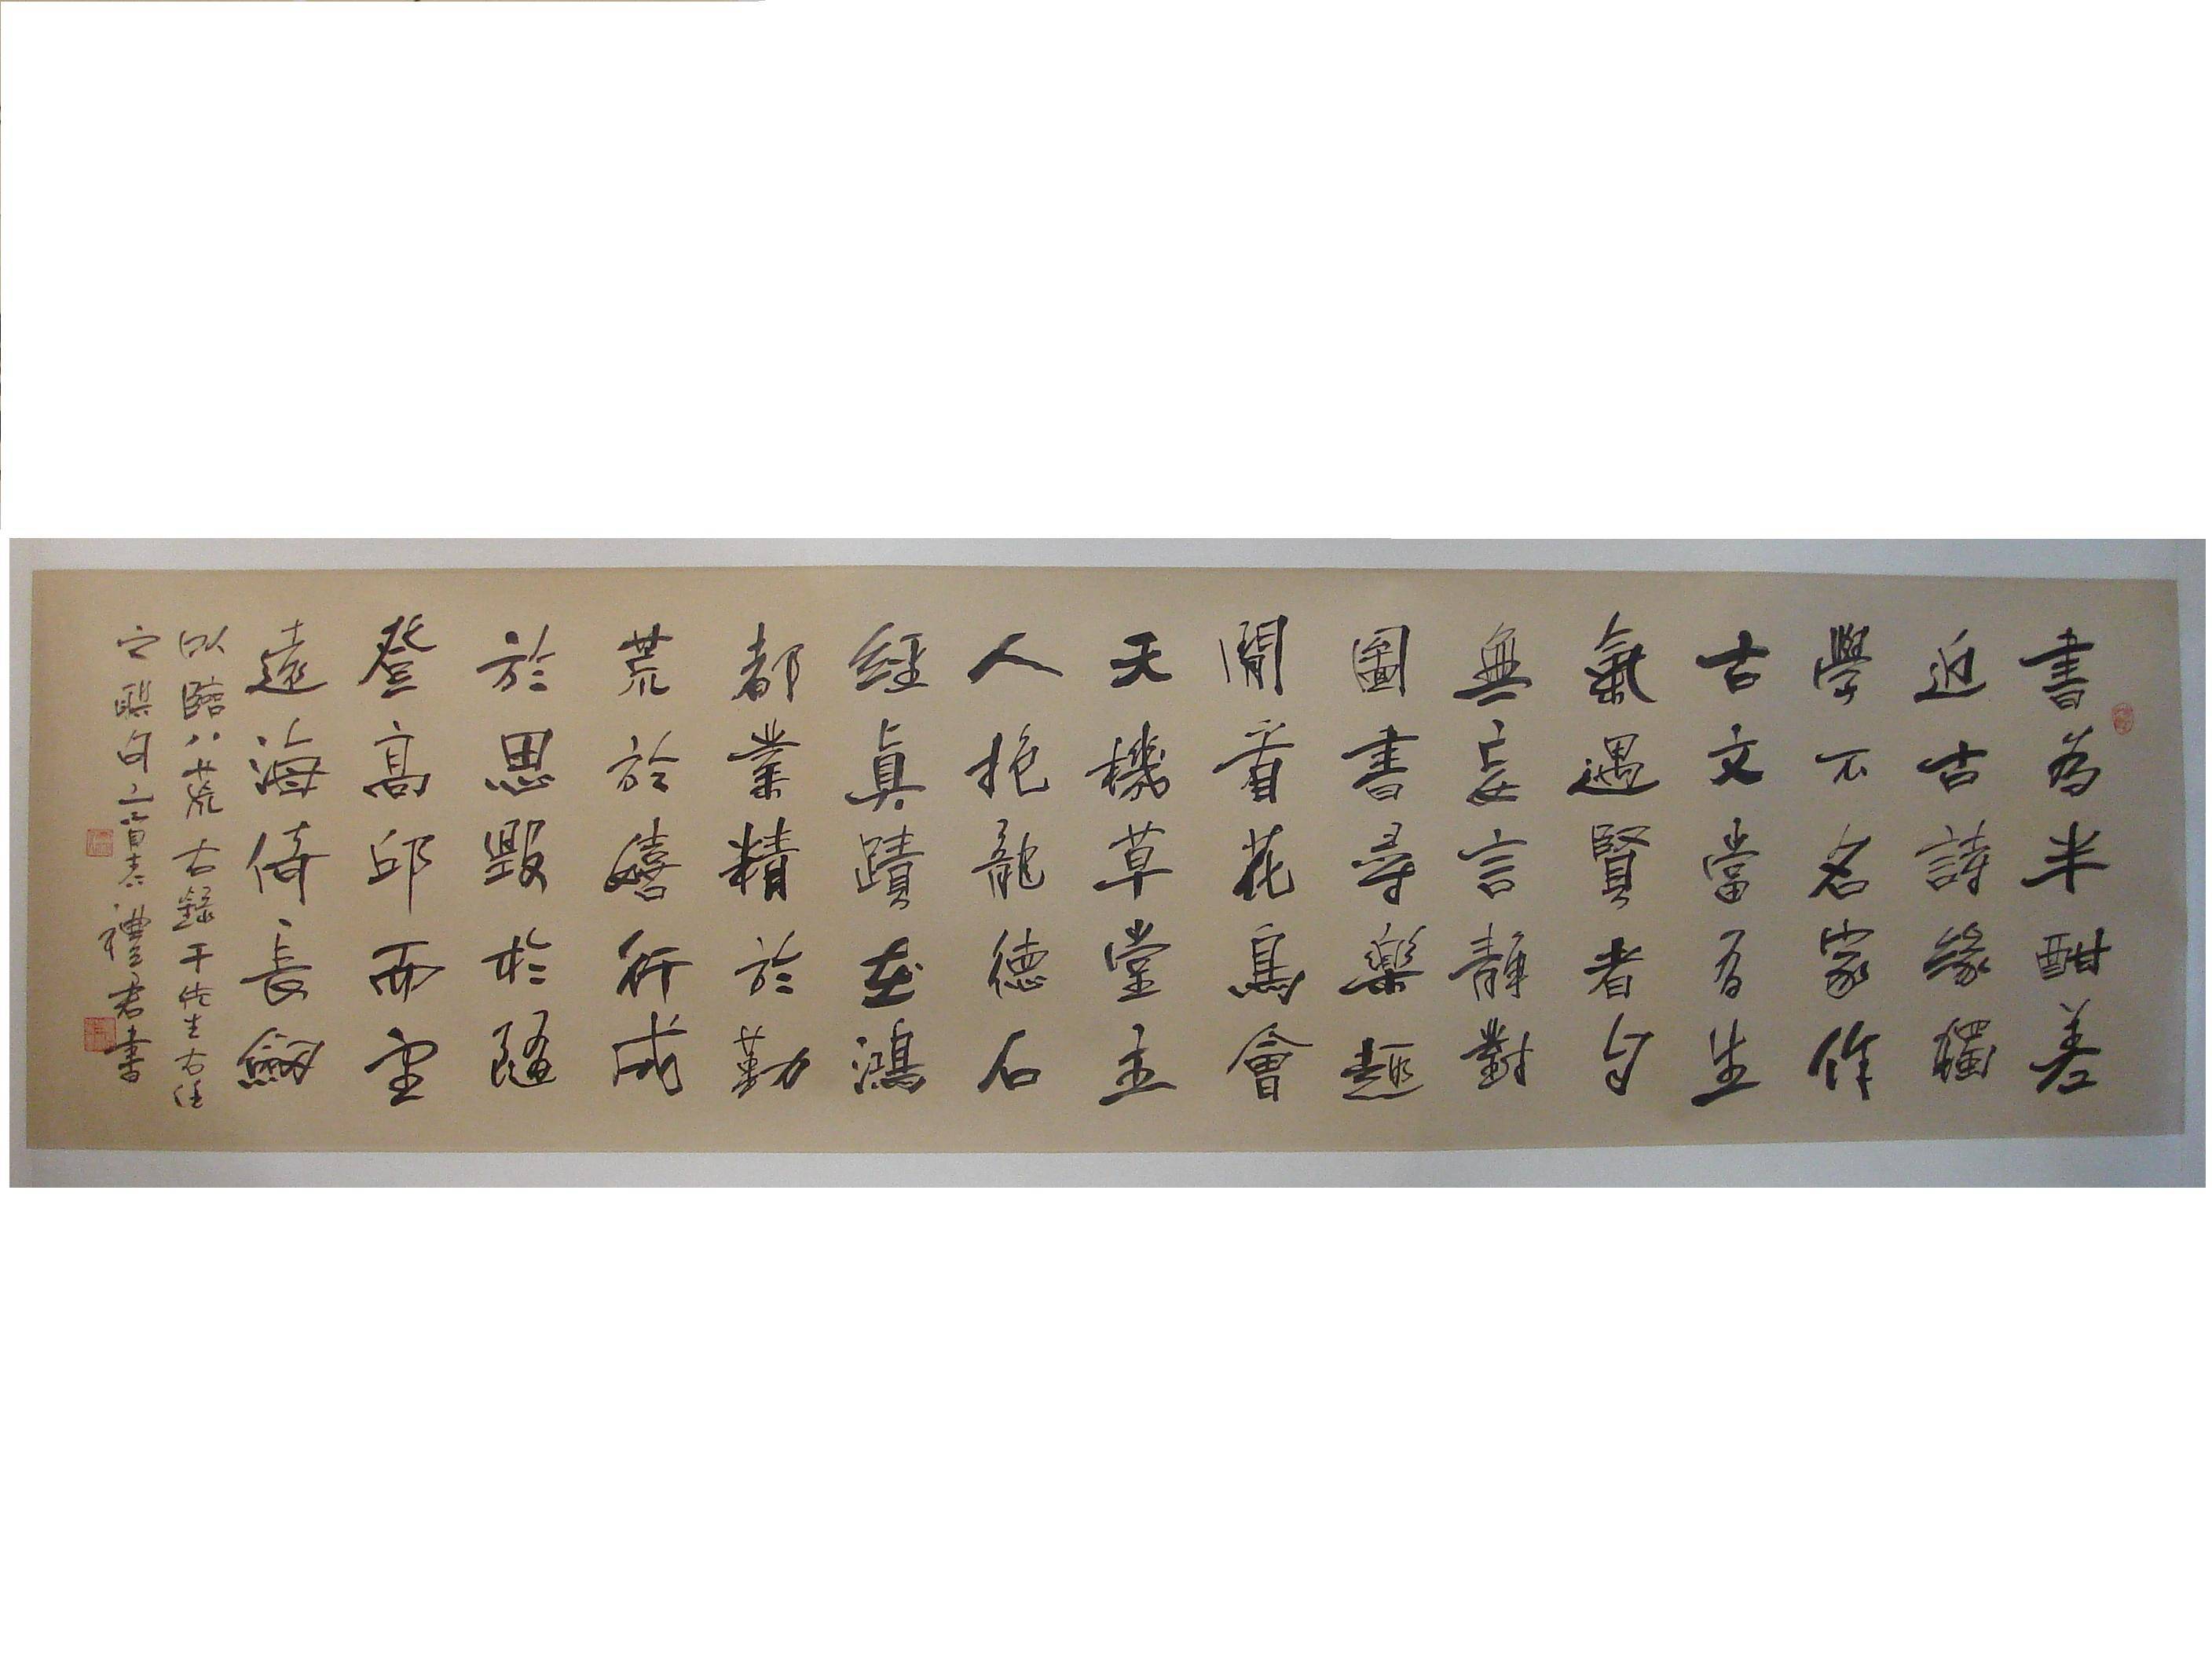 書為半酣差
近古詩緣獨
學不名家作
古文當有生
氣遇賢者自
無妄言靜對
圖書尋樂趣
閒看花鳥會
天機草堂主
人抱龍德石
經真蹟在鴻
都業精於勤
荒於嬉行成
於思毀於隨
登高邱而望
遠海倚長劍
以臨八荒 右錄于佐生右任
之聯句 禮君書